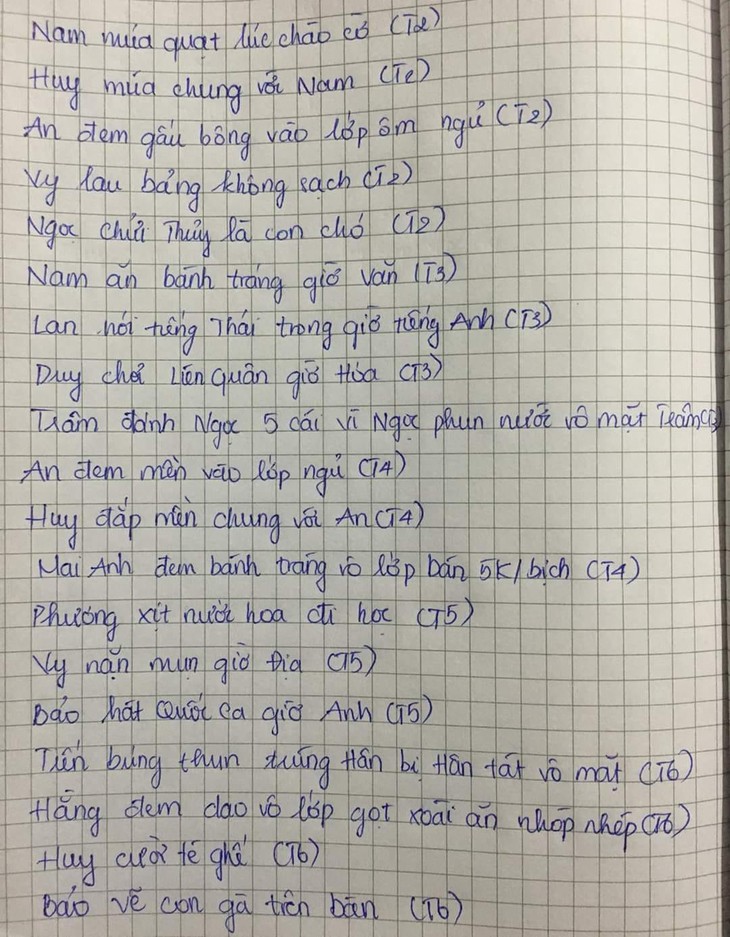 Nam múa quạt lúc chào cờ (T2)
Huy múa chung với Nam (T2)
An đem gấu bông vào lớp ôm ngủ (T2)
Vy lau bảng không sạch (T2)
Ngọc chửi Thủy là con chó (T2)
Nam ăn bánh tráng giờ văn (T3)
Lan nói tiếng Thái trong giờ tiếng Anh (T3)
Duy chơi Liên Quân giờ Hóa (T3)
Trâm đánh Ngọc 5 cái vì Ngọc phun nước vô mặt Trâm (T3)
An đem mền vào lớp ngủ (T4)
Huy đắp mền chung với An (T4)
Mai Anh đem bánh tráng vô lớp bán 5K/bịch (T4)
Phương xịt nước hoa đi học (T5)
Vy nặn mụn giờ Địa (T5)
Bảo hát Quốc ca giờ Anh (T5)
Tiến búng thun trúng Hân bị Hân tát vô mặt (T6)
Hằng đem dao vô lớp gọt xoài ăn nhóp nhép (T6)
Huy cười té ghế (T6)
Bảo vẽ con gà trên bàn (T6)